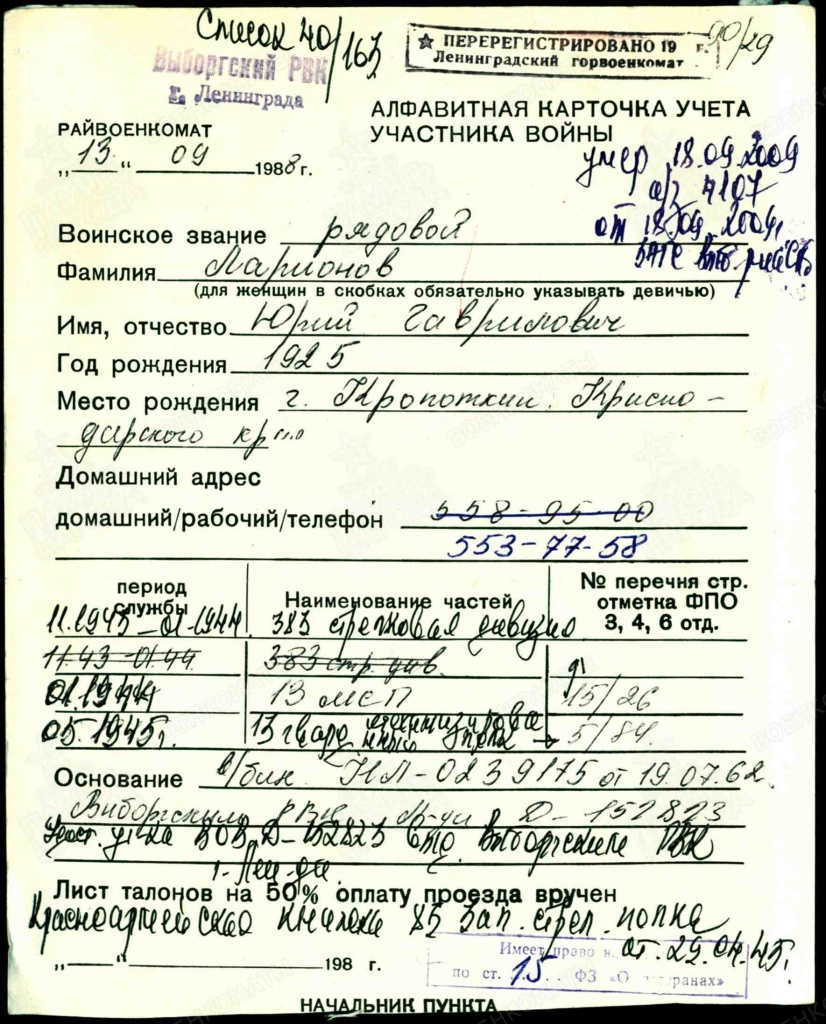 Список 40/163
Выборгский РВК
г. Ленинграда
ПЕРЕРЕГИСТРИРОВАНО 19 г.
Ленинградский горвоенкомат
90/29
АЛФАВИТНАЯ КАРТОЧКА УЧЕТА
УЧАСТНИКА ВОЙНЫ
РАЙВОЕНКОМАТ
„13“ 09 1988 г.
умер 18.09.2009
а/з 4107
от 18.09.2009,
ЗАГС Выб. р-на СПб
Воинское звание рядовой
Фамилия Ларионов
(для женщин в скобках обязательно указывать девичью)
Имя, отчество Юрий Гаврилович
Год рождения 1925
Место рождения г. Кропоткин. Красно-
дарского края
Домашний адрес
домашний/рабочий/телефон 558-95-00
553-77-58
период службы
Наименование частей
№ перечня стр. отметка ФПО 3, 4, 6 отд.
11.1943-01.1944 383 стрелковая дивизия
11.43-01.44 383 стр. див.
01.1944 13 мсп 15/26
05.1945г. 13 гвард. механизированный полк 5/84.
Основание в/бил. НЛ-0239175 от 19.07.62
Выборгским РВК Д-152823
Удост. уч-ка ВОВ Д-152823 Выборгским РВК
г. Лен-да
Лист талонов на 50% оплату проезда вручен
Красноармейская книжка 85 зап. стрел. полка
от. 29.04.45г.
Имеет право н
по ст. 15. ФЗ «О ветеранах»
„ “ 198 г.
НАЧАЛЬНИК ПУНКТА